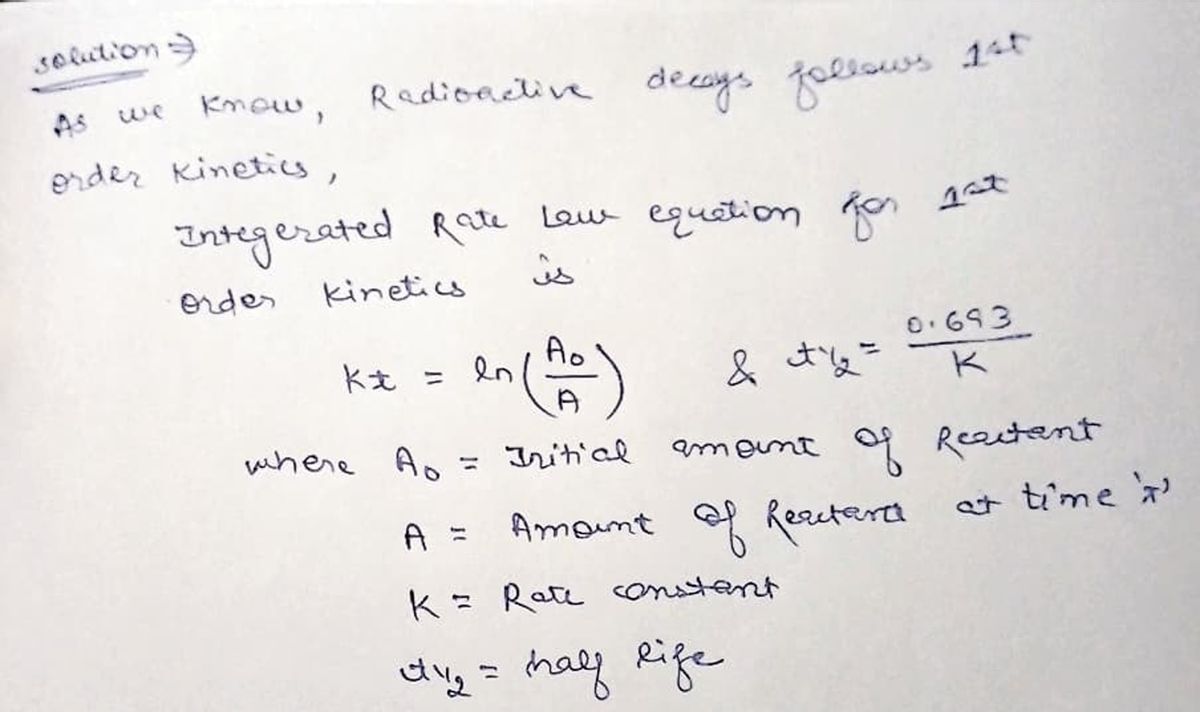 solution ⇒
As we know, Radioactive decays follows 1st
order kinetics,
Integerated Rate Law equation for 1st
order kinetics is
Kt = ln(A₀/A) & t½ = 0.693/K
where A₀ = Initial amount of Reactant
A = Amount of Reactant at time 't'
K = Rate constant
t½ = half life